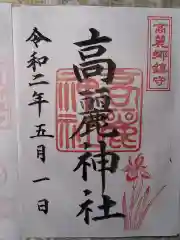 高麗郷鎮守
高麗神社
令和二年五月一日